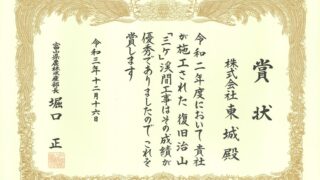 賞状
株式会社 東城殿
令和二年度において貴社
が施工された、復旧治山
「三ケ」渓間工事はその成績が
優秀でありましたのでこれを
賞します
令和三年十二月十六日
富山県農林水産部長 堀口 正